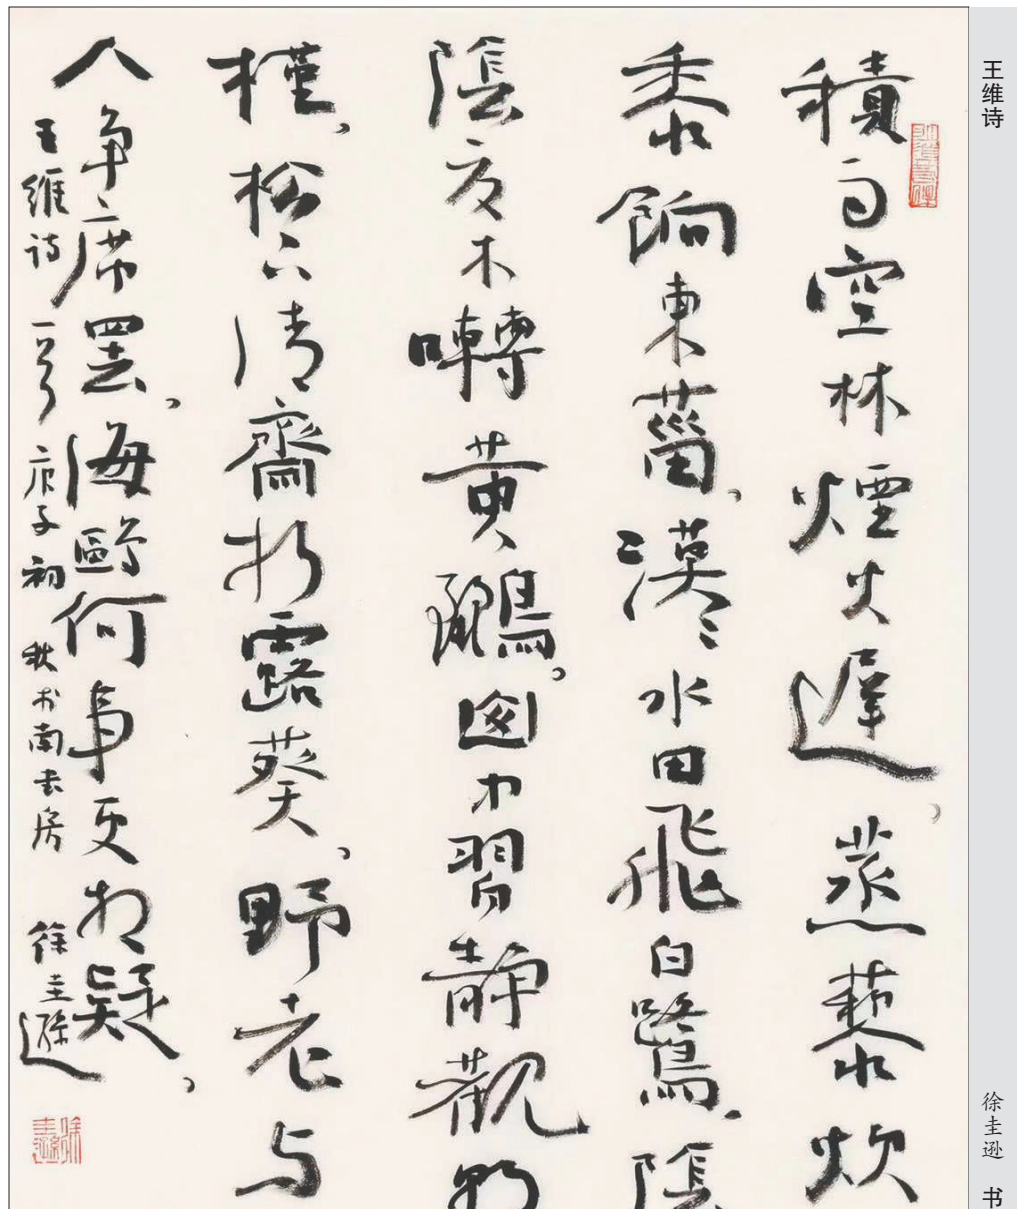 王维诗
徐圭逊 书
積雨空林煙火遲，蒸藜炊
黍餉東菑，漠〻水田飛白鷺，陰
陰夏木囀黄鸝。山中習靜觀朝
槿，松下清齋折露葵，野老与
人争席罷，海鷗何事更相疑，
王維詩一首 庚子初秋於南書房 徐圭遜